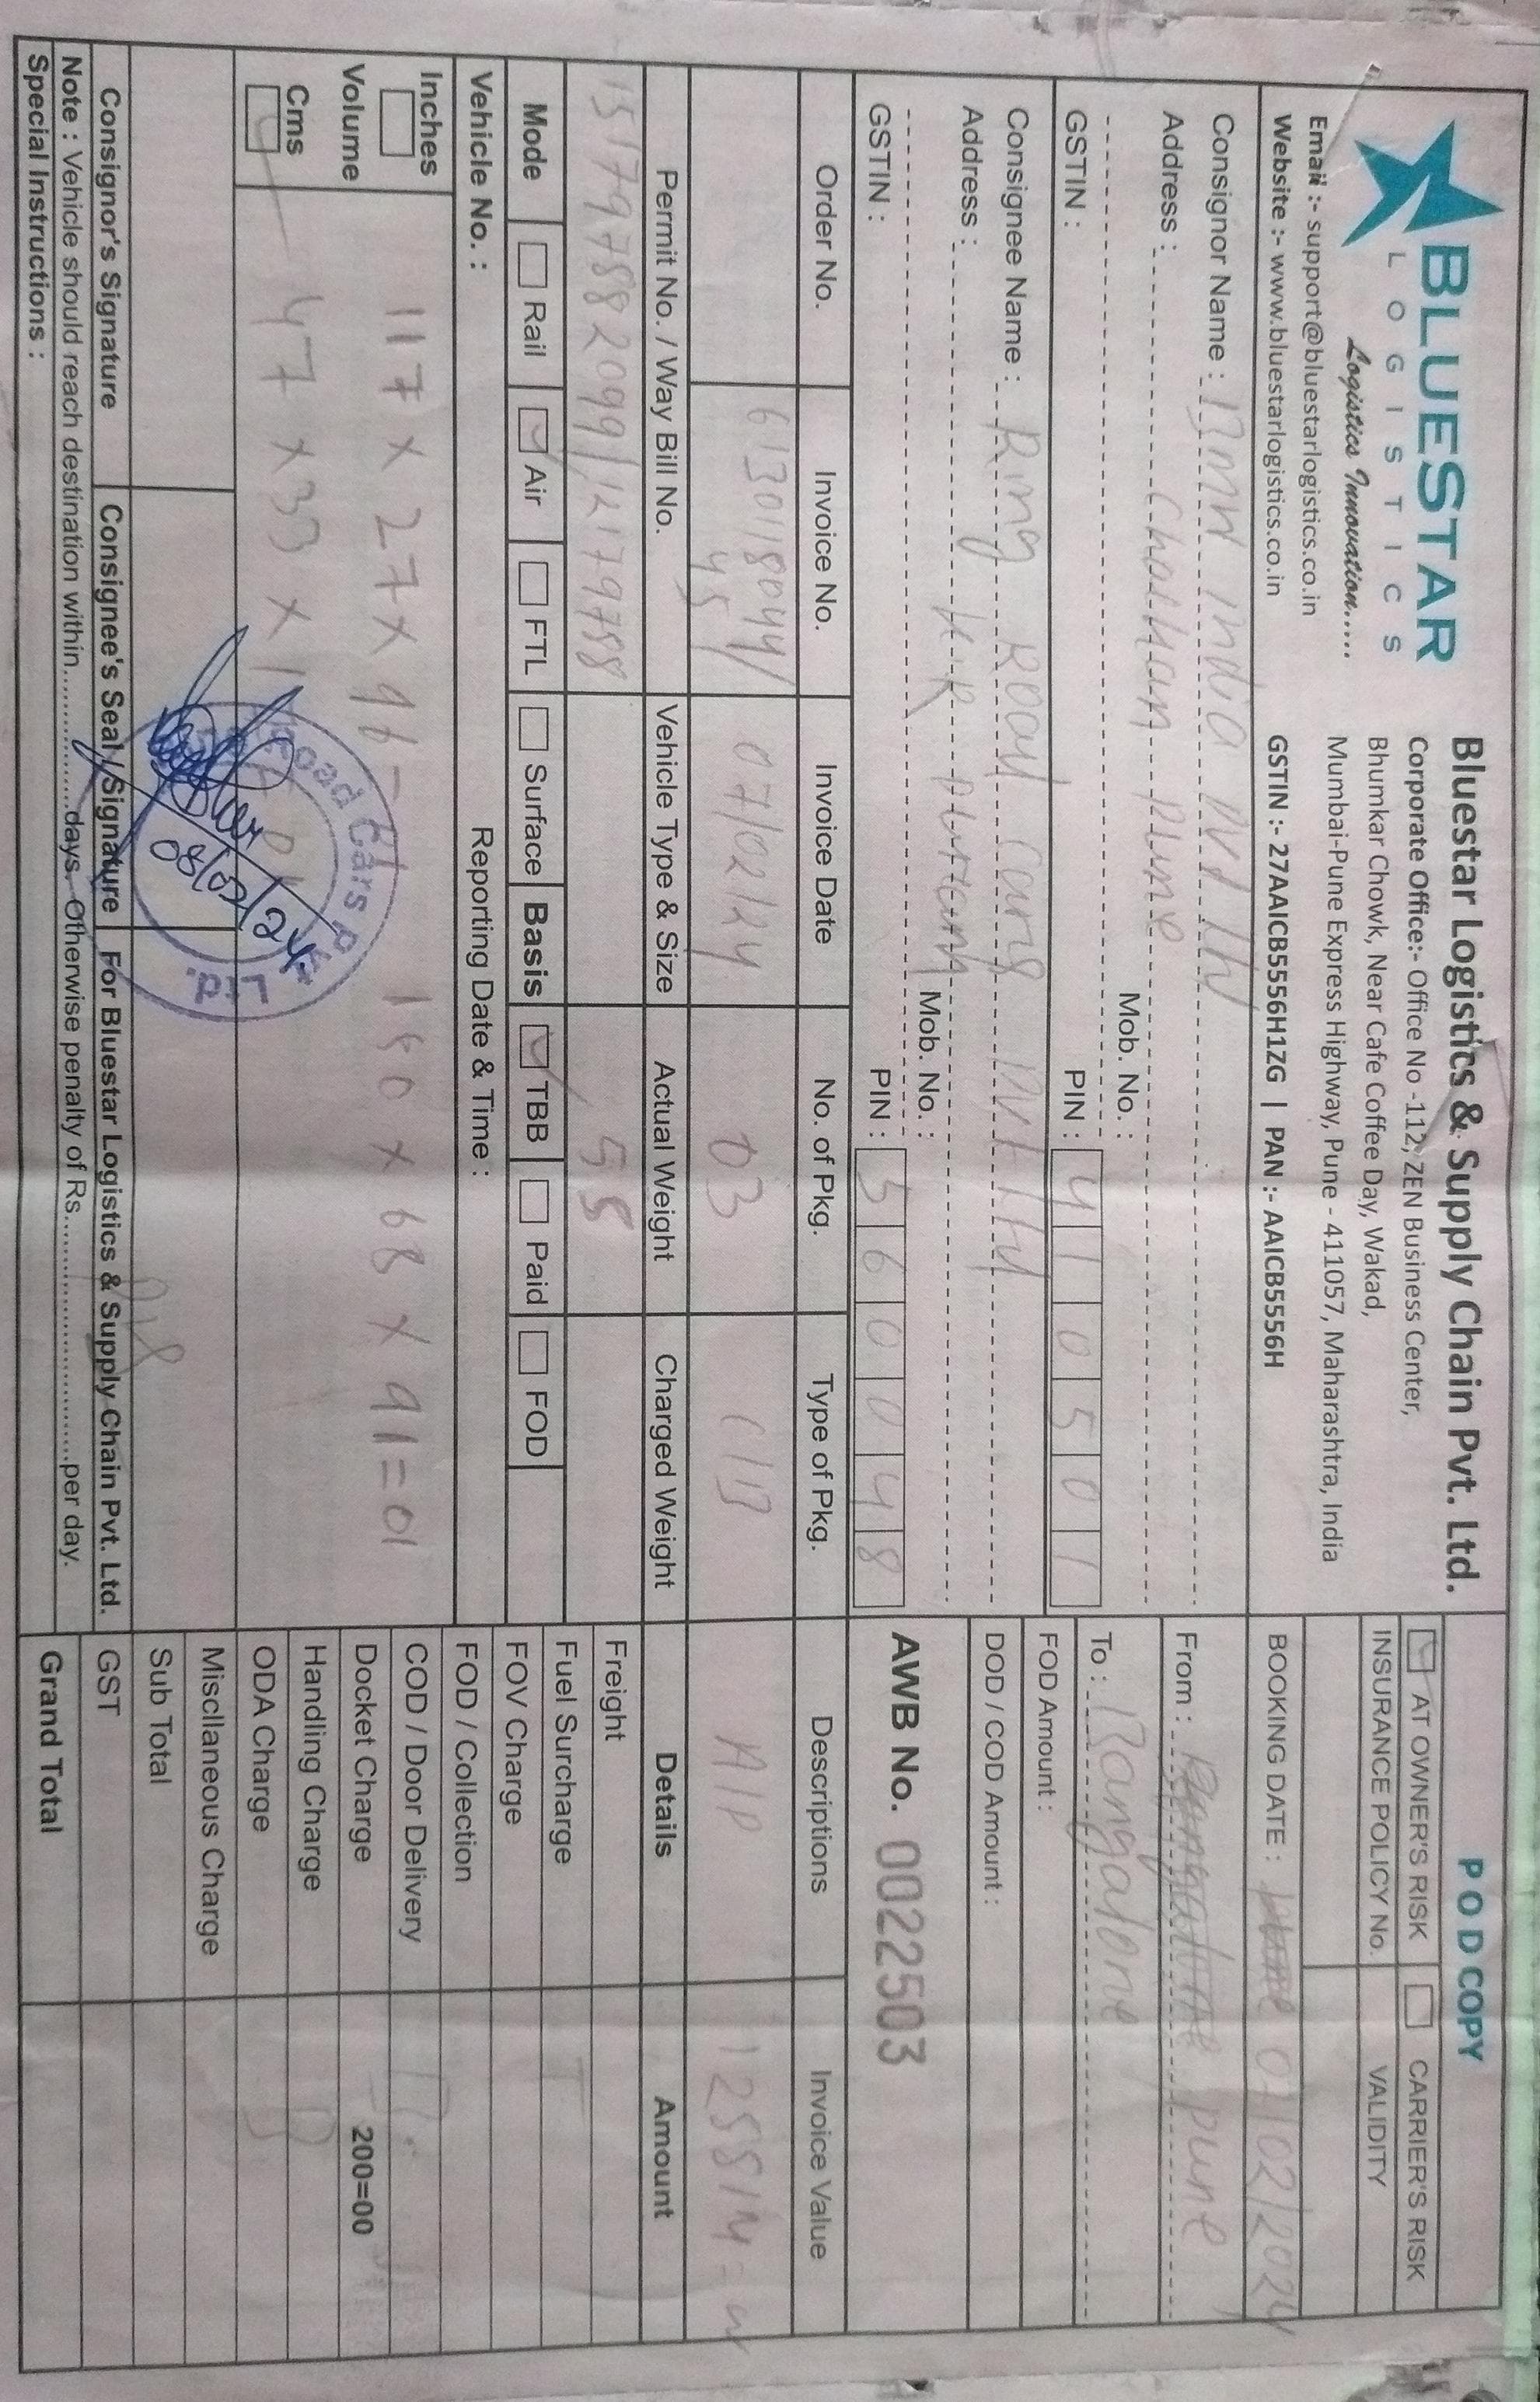 BLUESTAR
LOGISTICS
Logistics Innovation.....
Email :- support@bluestarlogistics.co.in
Website :- www.bluestarlogistics.co.in
Bluestar Logistics & Supply Chain Pvt. Ltd.
Corporate Office:- Office No -112, ZEN Business Center,
Bhumkar Chowk, Near Cafe Coffee Day, Wakad,
Mumbai-Pune Express Highway, Pune - 411057, Maharashtra, India
GSTIN :- 27AAICB5556H1ZG | PAN :- AAICB5556H
POD COPY
AT OWNER'S RISK CARRIER'S RISK
INSURANCE POLICY No. VALIDITY
BOOKING DATE : 07/02/2024
From : Pune
To : Bangalore
FOD Amount :
DOD / COD Amount :
AWB No. 0022503
Consignor Name : BMW India Pvt Ltd
Address : Pune
Mob. No. :
GSTIN : PIN : 410501
Consignee Name : Ring Road Cars Pvt Ltd
Address : K.R
Mob. No. :
GSTIN : PIN : 560048
Order No. Invoice No. Invoice Date No. of Pkg. Type of Pkg. Descriptions Invoice Value
6130118044/ 07/02/24 03 C/B A/P
45
Permit No. / Way Bill No. Vehicle Type & Size Actual Weight Charged Weight Details Amount
55
Mode Rail Air FTL Surface Basis TBB Paid FOD
Vehicle No. : Reporting Date & Time :
Inches
Volume
Cms
117 x 27 x 96 68 x 91=01
47 x 33 x
Road Cars Pvt. Ltd.
08/02/24
Freight
Fuel Surcharge
FOV Charge
FOD / Collection
COD / Door Delivery
Docket Charge 200=00
Handling Charge
ODA Charge
Miscllaneous Charge
Sub Total
GST
Grand Total
Consignor's Signature Consignee's Seal / Signature For Bluestar Logistics & Supply Chain Pvt. Ltd.
Note : Vehicle should reach destination within.................days. Otherwise penalty of Rs..............................per day.
Special Instructions :